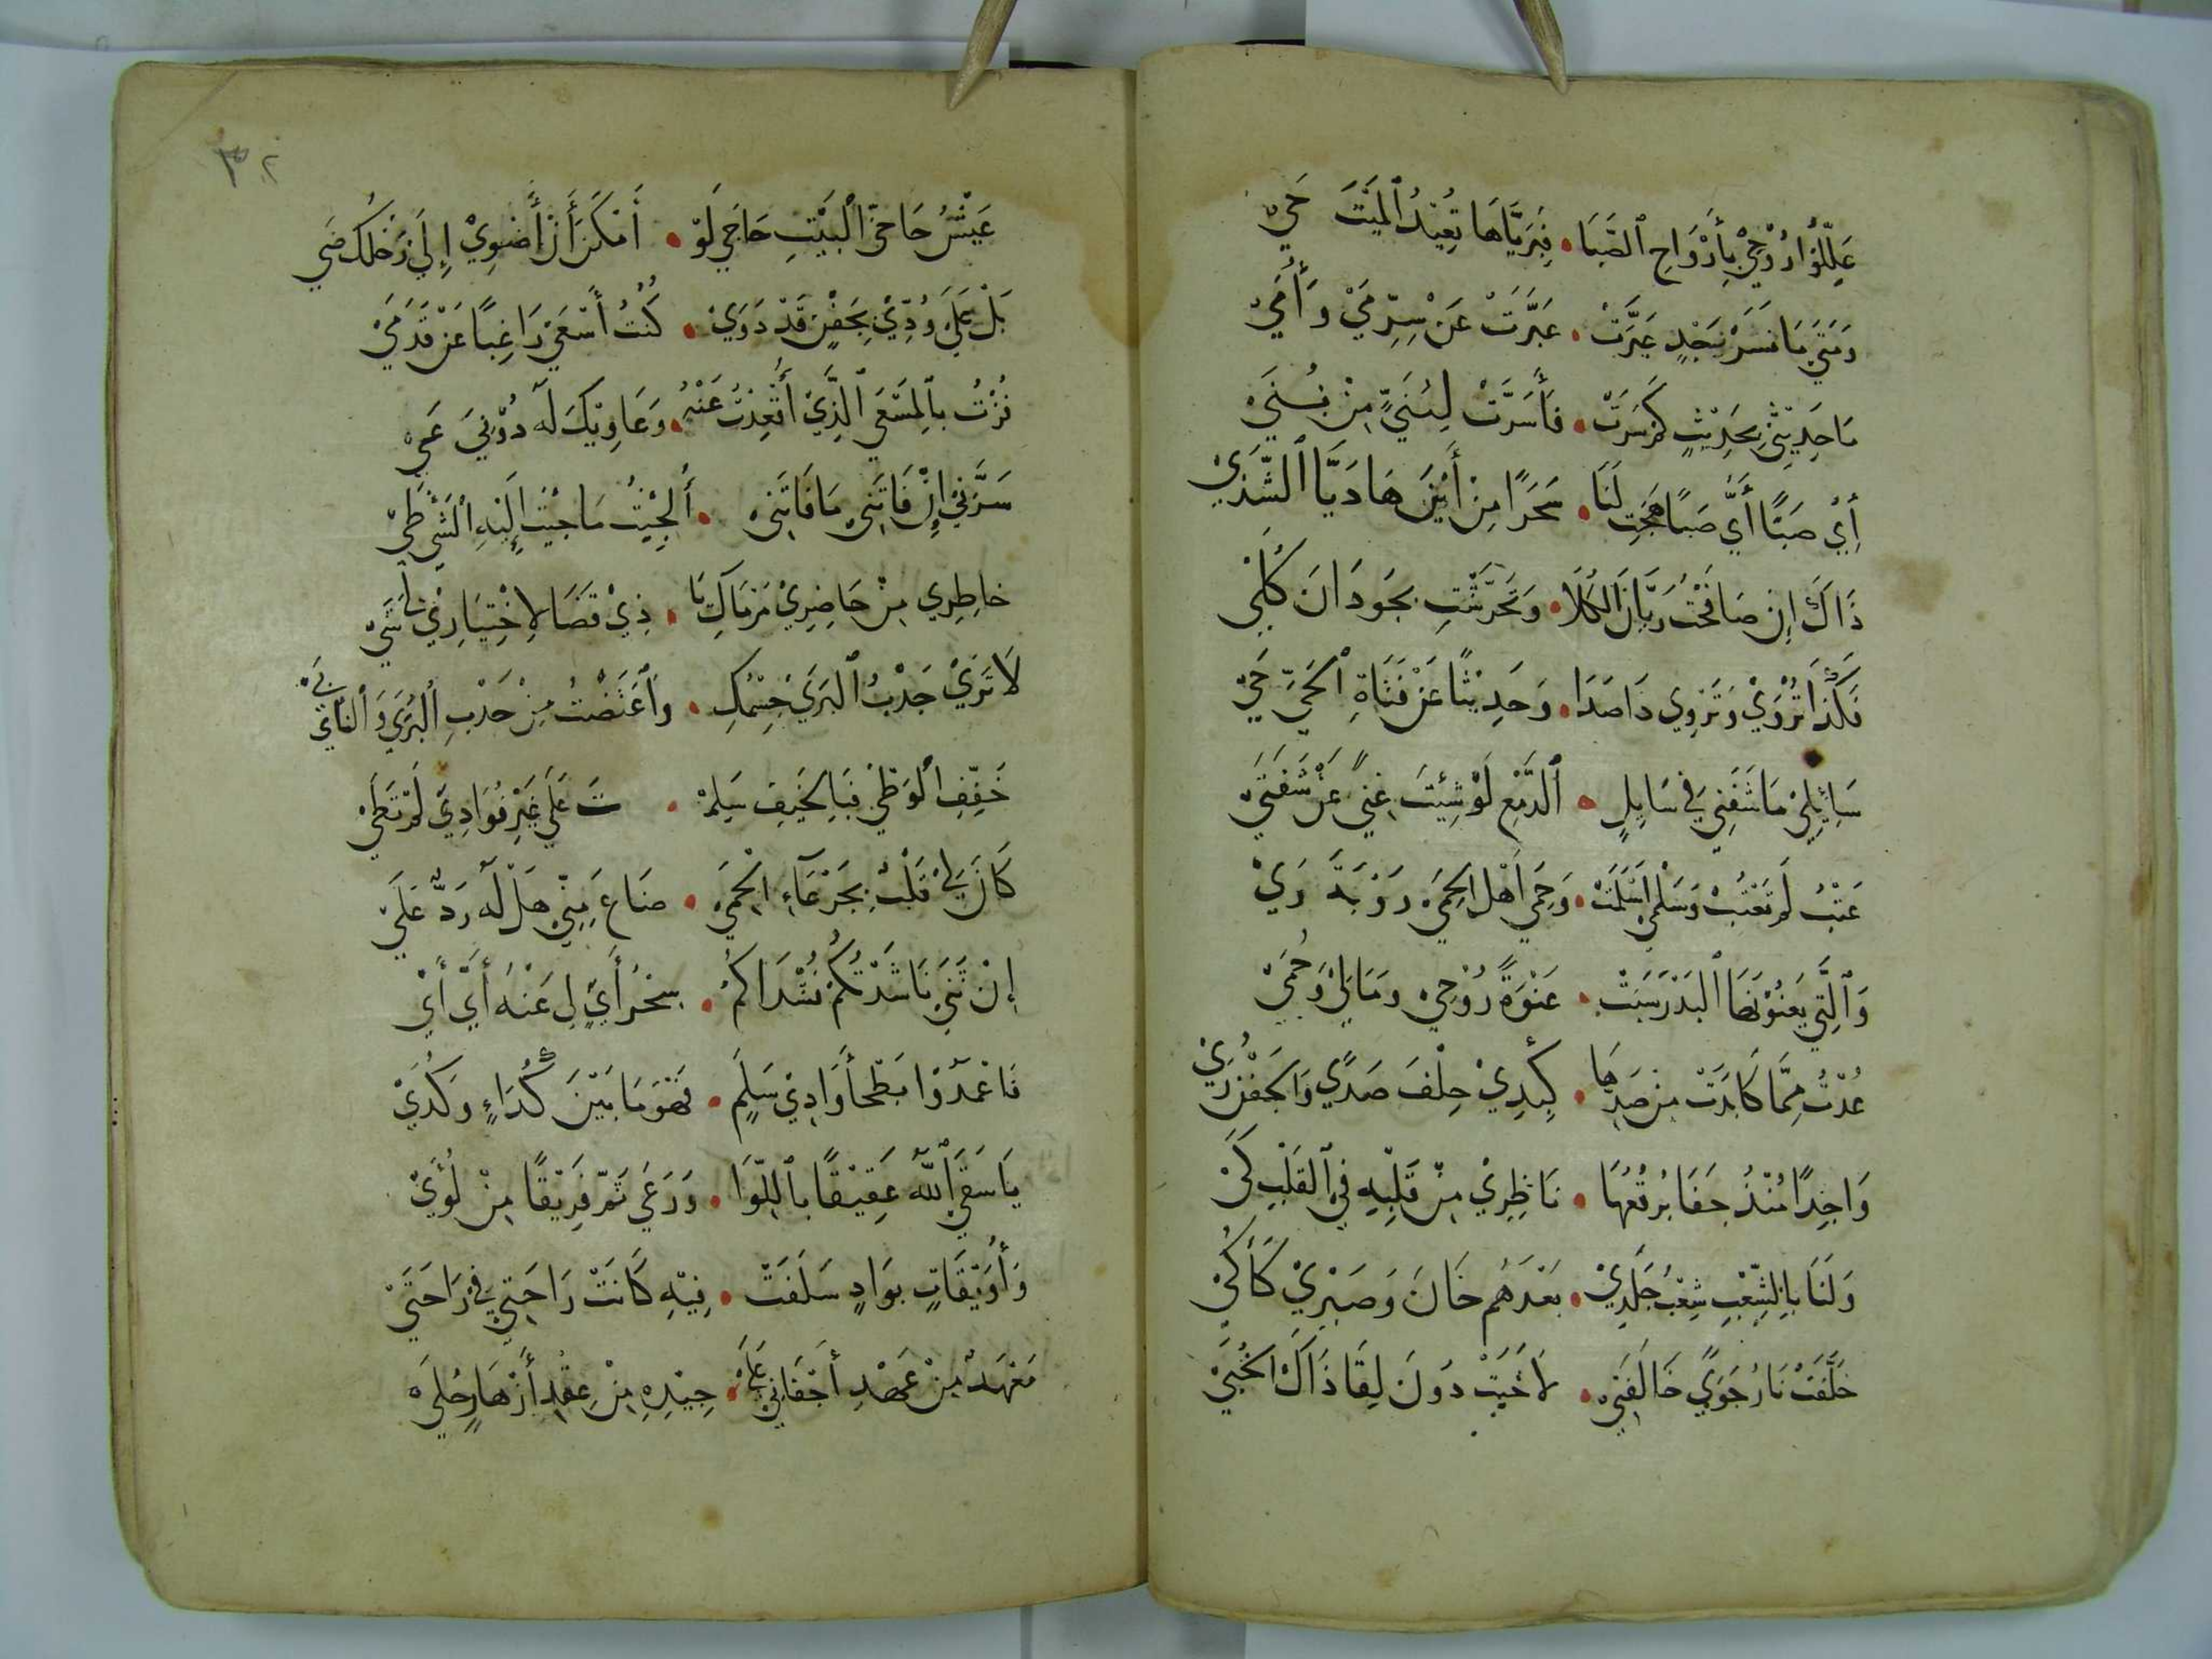 عَلِّلُوا رُوْحِيْ بِأَرْوَاحِ الصَّبَا • فَبِرَيَّاهَا يَعُيْدُ الْمَيْتَ حَيْ
وَمَتَي مَا سَرَّ نَجْدٍ عَبَرَتْ • عَبَّرَتْ عَنْ سِرِّ مَيْ وَأُمَيْ
مَا حَدِيْثِيْ بِحَدِيْثٍ كَمْ سَرَتْ • فَأَسَرَّتْ لِنَبِيٍّ مِنْ نُبَيْ
أَيْ صَبًا أَيَّ صَبًا هِجْتِ لَنَا • سَحَرًا مِنْ أَيْنَ هَا دَيَّا الشَّذَيْ
ذَاكَ إِنْ صَافَحْتِ رَيَّانَ الْكَلَا • وَتَحَرَّشْتِ بِحَوْدَانِ كُلَيْ
فَلِذَا تُرْوَيْ وَتَرْوِي ذَا صَدَا • وَحَدِيْثًا عَنْ فَتَاةِ الْحَيِّ حَيْ
سَائِلِيْ مَا شَفَّنِيْ فِي سَايِلِ • الدَّمْعِ لَوْ شِيْتَ غِنًي عَنْ شَفَتَيْ
عَتْبُ لَمْ تَعْتَبْ وَسَلْمَي أَسْلَمَتْ • وَحَمَي أَهْلُ الْحِمَي رُؤْيَةَ رَيْ
وَالَّتِي يَعْنُوْ لَهَا الْبَدْرُ سَبَتْ • عَنْوَةً رُوْحِيْ وَمَالِيْ وَحُمَيْ
عُدْتُ مِمَّا كَابَدَتْ مِنْ صَدِّهَا • كَبِدِيْ حِلْفَ صَدًي وَالْجَفْنُ رَيْ
وَاجِدًا مُنْذُ جَفَا بُرْقُعُهَا • نَاظِرِيْ مِنْ قَلْبِهِ فِي الْقَلْبِ كَيْ
وَلَنَا بِالشِّعْبِ شَعْبٌ جَلَدِيْ • بَعْدَهُمْ خَانَ وَصَبْرِيْ كَاءَ كَيْ
خَلَّفَتْ نَارُ جَوًي حَالَفَنِيْ • لَا خَبَتْ دُونَ لِقَا ذَاكَ الْخُبَيْ
٣٢
عَيْشُ حَاجِي الْبَيْتِ حَاجِي لَوْ • أَمْكَنَ أَنْ أَضْوِيْ إِلَي رَحْلِكِ ضَيْ
بَلْ عَلَيْ وُدِّيْ بِجَفْنٍ قَدْ دَمِيْ • كُنْتُ أَسْعَيْ رَاغِبًا عَنْ قَدَمَيْ
فُزْتُ بِالْمَسْعَي الَّذِيْ أُقْعِدْتُ عَنْهُ • وَعَاوِيْكَ لَهُ دُوْنِيَ عَيْ
سَرَّنِيْ إِنْ فَاتَنِيْ مَا فَاتَنِيْ • أَلْخَبْتُ مَا جِيْتُ إِلَيْهِ الشَّيْ طَيْ
خَاطِرِي مِنْ حَاضِرِيْ مَرْمَاكِ مَا • ذِيْ قَضَا لَا خْتِيَارِيْ لِيْ شَيْ
لَا تَرَيْ جَذْبُ الْبَرَي جِسْمُكِ • وَاعْتَضْتُ مِنْ جَدْبِ الْبُرَي وَالنَّايِ نَيْ
خَفِّفِ الْوَطْيَ فَبِالْخَيْفِ سَلِمْ • تَ عَلَي غَيْرِ فُؤَادِيْ لَمْ تَطَيْ
كَانَ لِيْ قَلْبٌ بِجَرْعَآءِ الْحِمَي • ضَاعَ مِنِّيْ هَلْ لَهُ رَدٌّ عَلَيْ
إِنْ ثَنَي نَاشَدْتُكُمْ نُشْدَاكُمْ • سِحْرُ أَيٍّ لِي عَنْهُ أَيَّ أَيْ
فَاعْهَدُوْا بَطْحَا وَادِيْ سَلَمٍ • فَهْوَ مَا بَيْنَ كُدَاءٍ وَكُدَيْ
يَا سَقَي اللّٰهُ عَقِيْقًا بِاللِّوَا • وَرَعَي ثَمَّ فَرِيْقًا مِنْ لُؤَيْ
وَأُوَيْقَاتٍ بِوَادٍ سَلَفَتْ • فِيْهِ كَانَتْ رَاحَتِيْ فِي رَاحَتَيْ
مَعْهَدٌ مِنْ عَهْدِ أَجْفَانِيْ عَلَيْ • جِيْدِهِ مِنْ عِقْدِ أَزْهَارٍ حُلَيْ